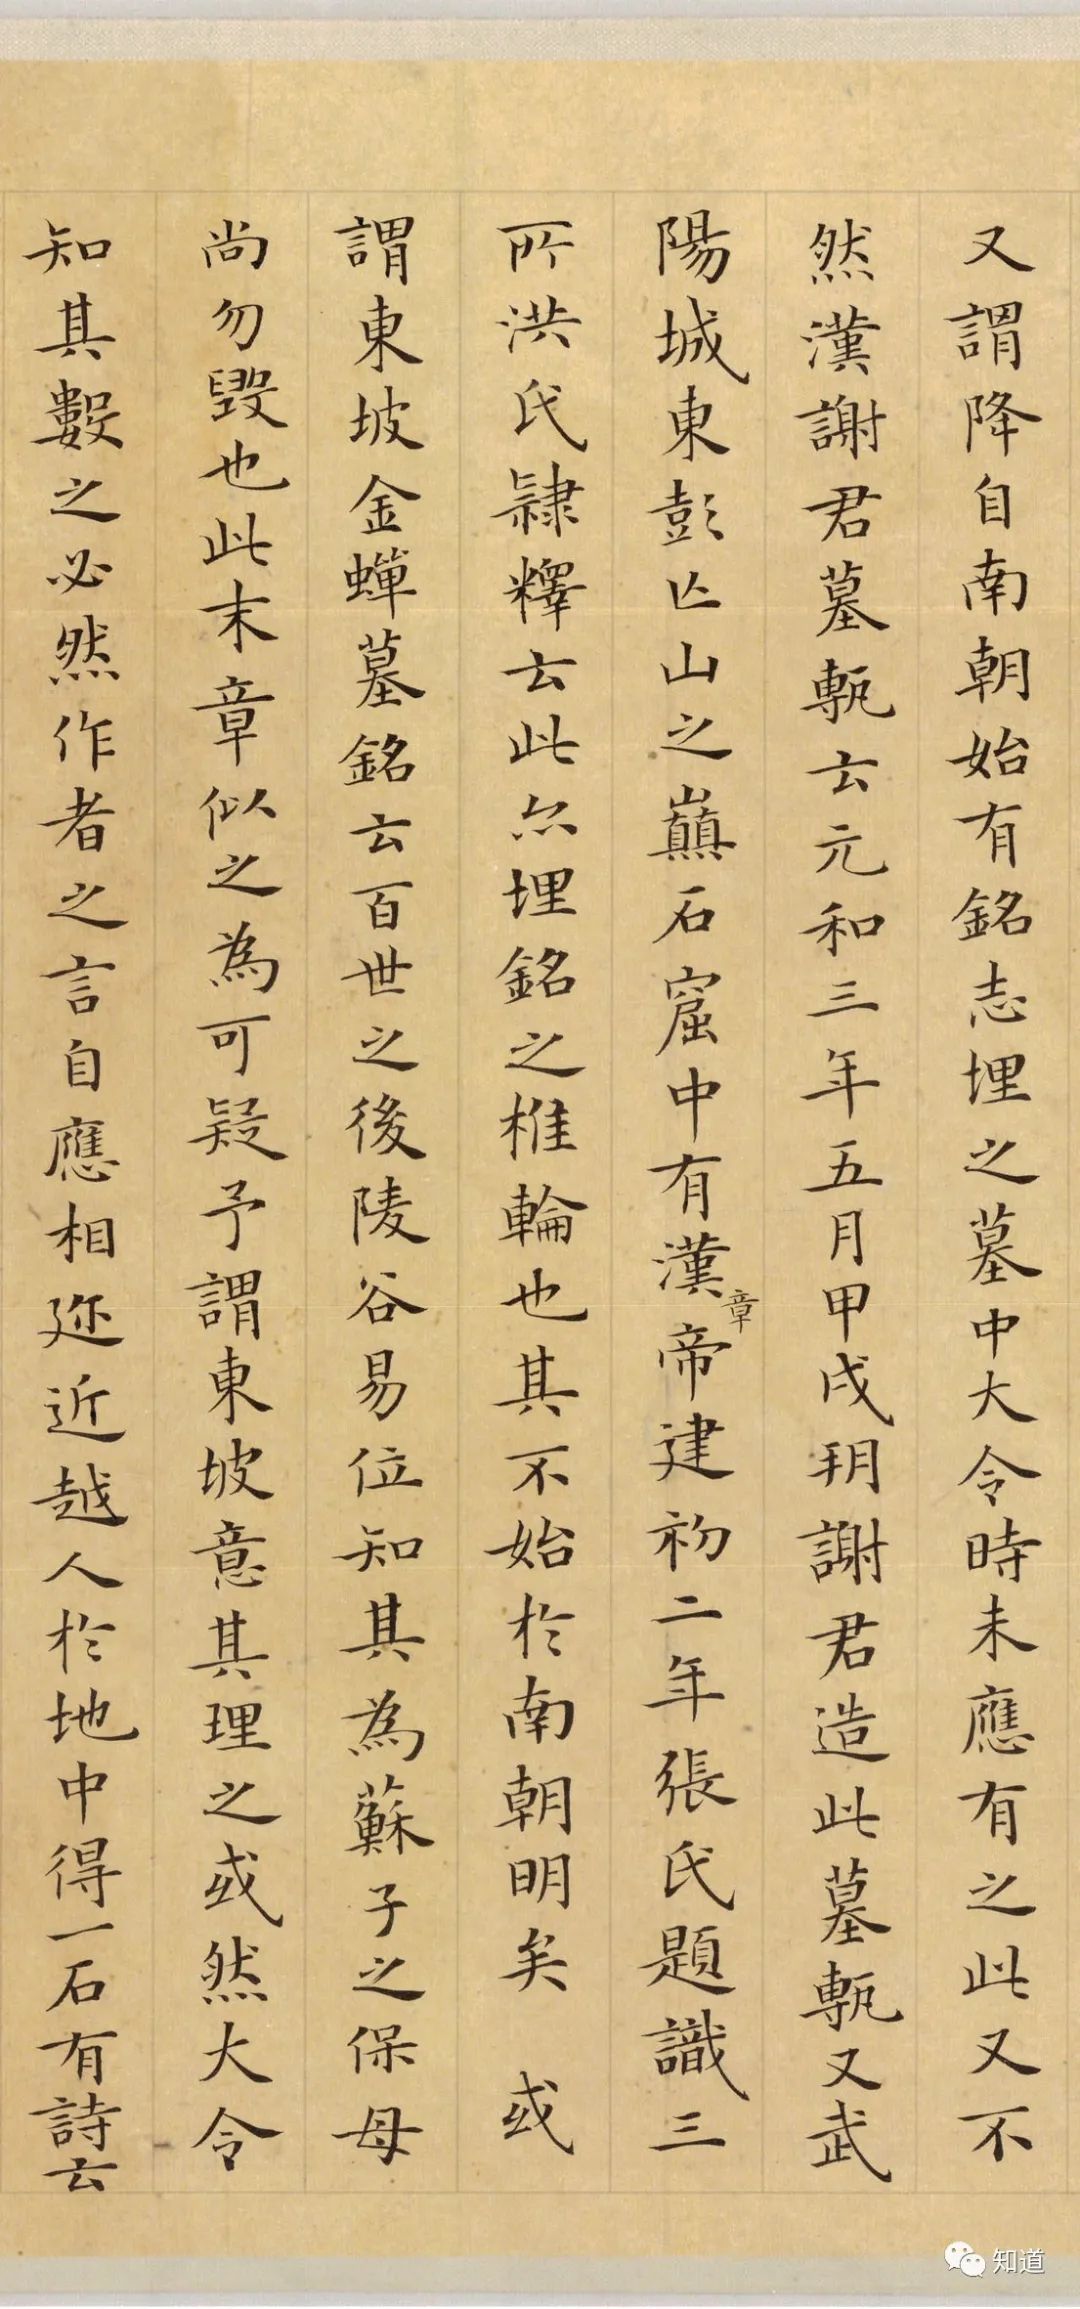 又謂降自南朝始有銘志埋之墓中大令時未應有之此又不
然漢謝君墓甎云元和三年五月甲戌朔謝君造此墓甎又武
陽城東彭亡山之巔石窟中有漢章帝建初二年張氏題識三
所洪氏隷釋云此亦埋銘之椎輪也其不始於南朝明矣 或
謂東坡金蟬墓銘云百世之後陵谷易位知其為蘇子之保母
尚勿毀也此末章似之為可疑予謂東坡意其理之或然大令
知其數之必然作者之言自應相迩近越人於地中得一石有詩云
知道